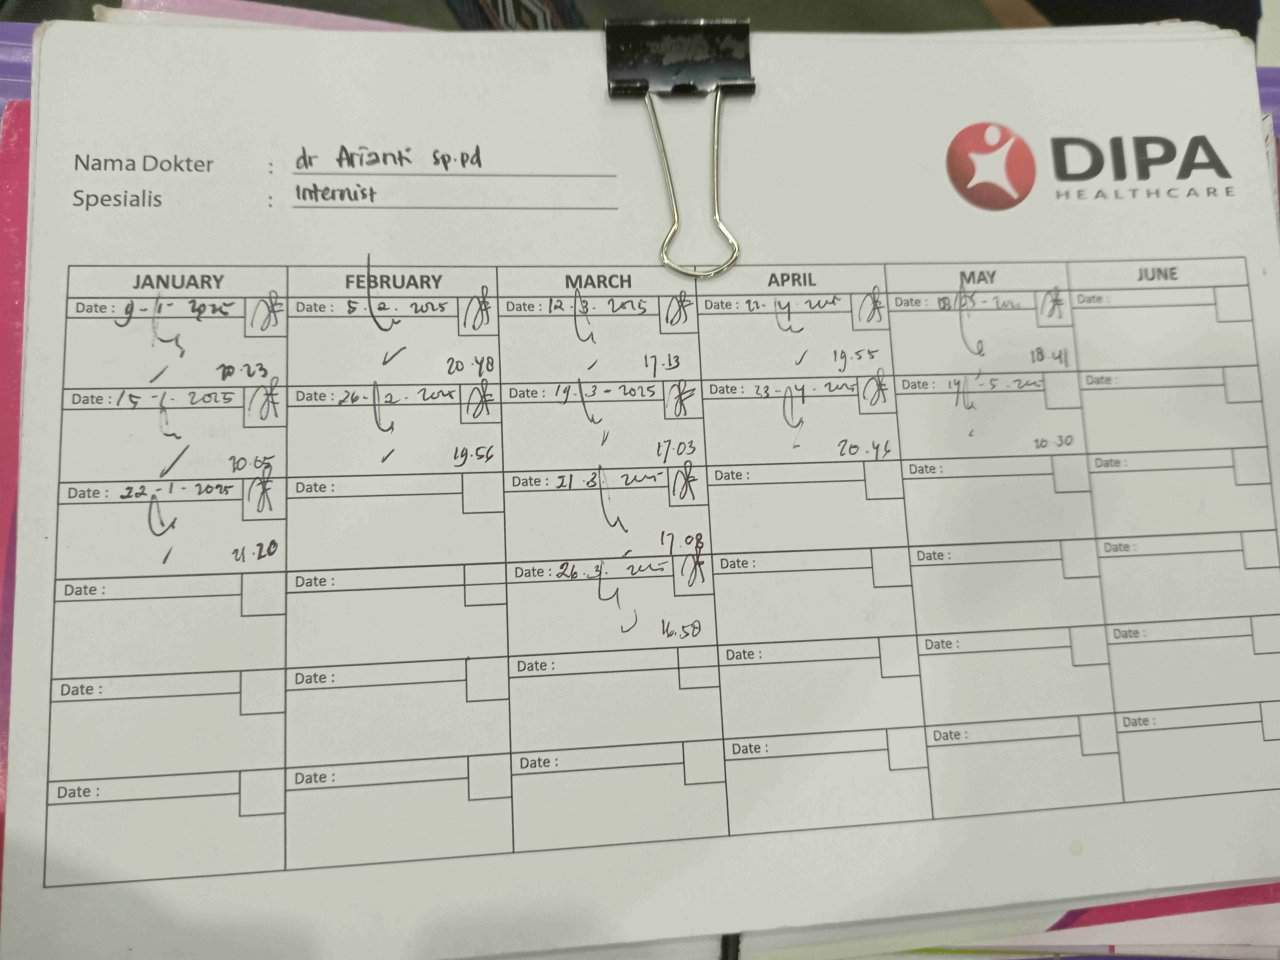 Nama Dokter : dr Arianti sp.pd
Spesialis : Internist
DIPA
HEALTHCARE
JANUARY FEBRUARY MARCH APRIL MAY JUNE
Date : 9-1-2025 Date : 5.2.2025 Date : 12.3.2025 Date : 22.4 Date : Date :
20.23 20.48 17.13 19.55 18.41
Date : 15-1-2025 Date : 26-2.2025 Date : 19.3-2025 Date : 23-4. Date : 14-5. Date :
20.05 19.56 17.03 20.46 20.30
Date : 22-1-2025 Date : Date : 21.3 Date : Date : Date :
21.20 17.08
Date : Date : Date : 26.3. Date : Date : Date :
16.50
Date : Date : Date : Date : Date : Date :
Date : Date : Date : Date : Date : Date :